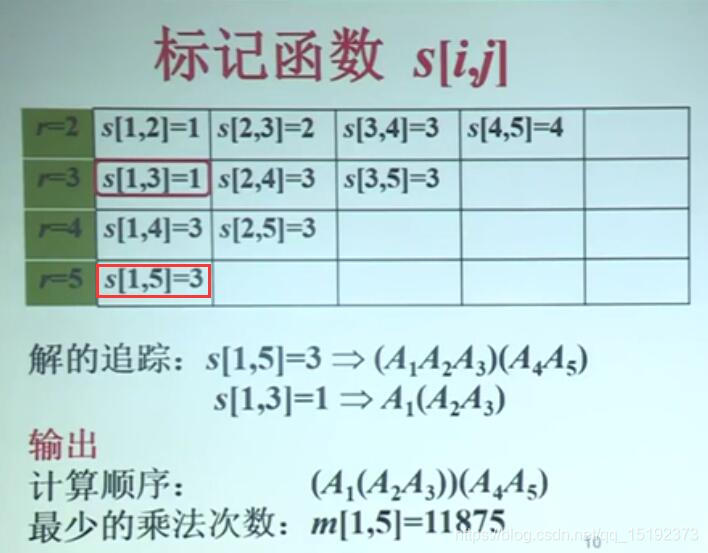 标记函数 s[i,j]
r=2 s[1,2]=1 s[2,3]=2 s[3,4]=3 s[4,5]=4
r=3 s[1,3]=1 s[2,4]=3 s[3,5]=3
r=4 s[1,4]=3 s[2,5]=3
r=5 s[1,5]=3
解的追踪：s[1,5]=3 ⇒ (A₁A₂A₃)(A₄A₅)
s[1,3]=1 ⇒ A₁(A₂A₃)
输出
计算顺序： (A₁(A₂A₃))(A₄A₅)
最少的乘法次数：m[1,5]=11875
https://blog.csdn.net/qq_15192373
10